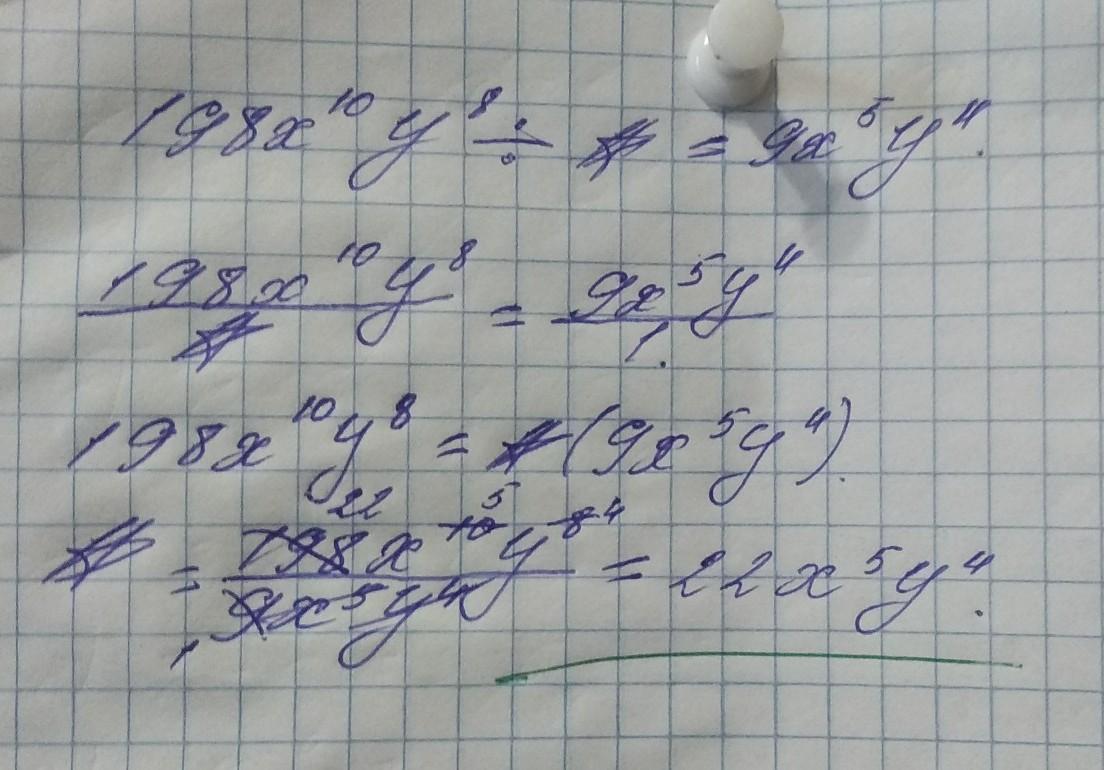 198x¹⁰y⁸ ÷ ☆ = 9x⁵y⁴.
198x¹⁰y⁸/☆ = 9x⁵y⁴/1.
198x¹⁰y⁸ = ☆(9x⁵y⁴).
22 5 4
☆ = 198x¹⁰y⁸/9x⁵y⁴ = 22x⁵y⁴.
1